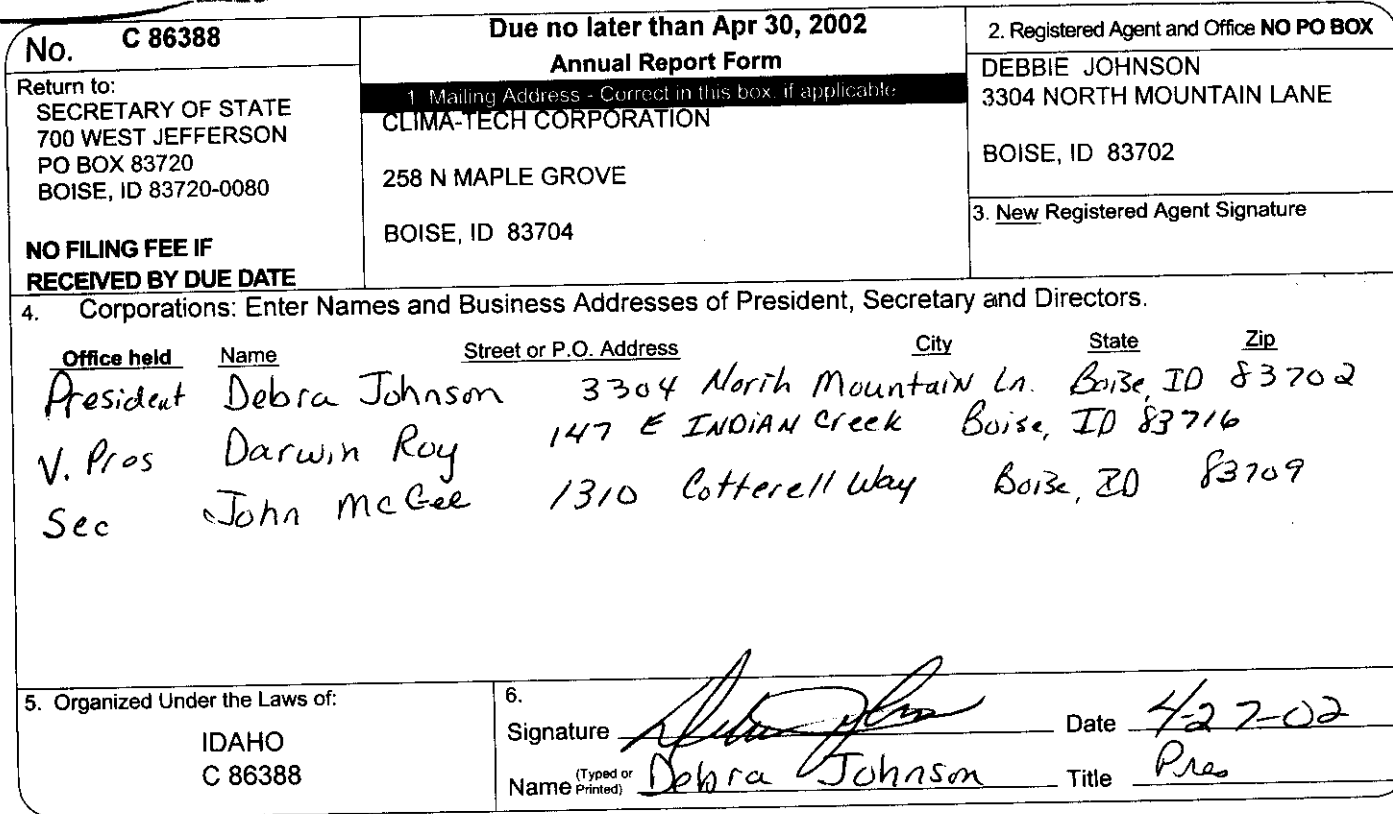 No. C 86388
Return to:
SECRETARY OF STATE
700 WEST JEFFERSON
PO BOX 83720
BOISE, ID 83720-0080
NO FILING FEE IF
RECEIVED BY DUE DATE
Due no later than Apr 30, 2002
Annual Report Form
1. Mailing Address - Correct in this box, if applicable
CLIMA-TECH CORPORATION
258 N MAPLE GROVE
BOISE, ID 83704
2. Registered Agent and Office NO PO BOX
DEBBIE JOHNSON
3304 NORTH MOUNTAIN LANE
BOISE, ID 83702
3. New Registered Agent Signature
4. Corporations: Enter Names and Business Addresses of President, Secretary and Directors.
Office held Name Street or P.O. Address City State Zip
President Debra Johnson 3304 North Mountain Ln. Boise, ID 83702
V. Pres Darwin Roy 147 E INDIAN Creek Boise, ID 83716
Sec John McGee 1310 Cotterell Way Boise, ID 83709
5. Organized Under the Laws of:
IDAHO
C 86388
6.
Signature Debra Johnson Date 4-27-02
Name (Typed or Printed) Debra Johnson Title Pres